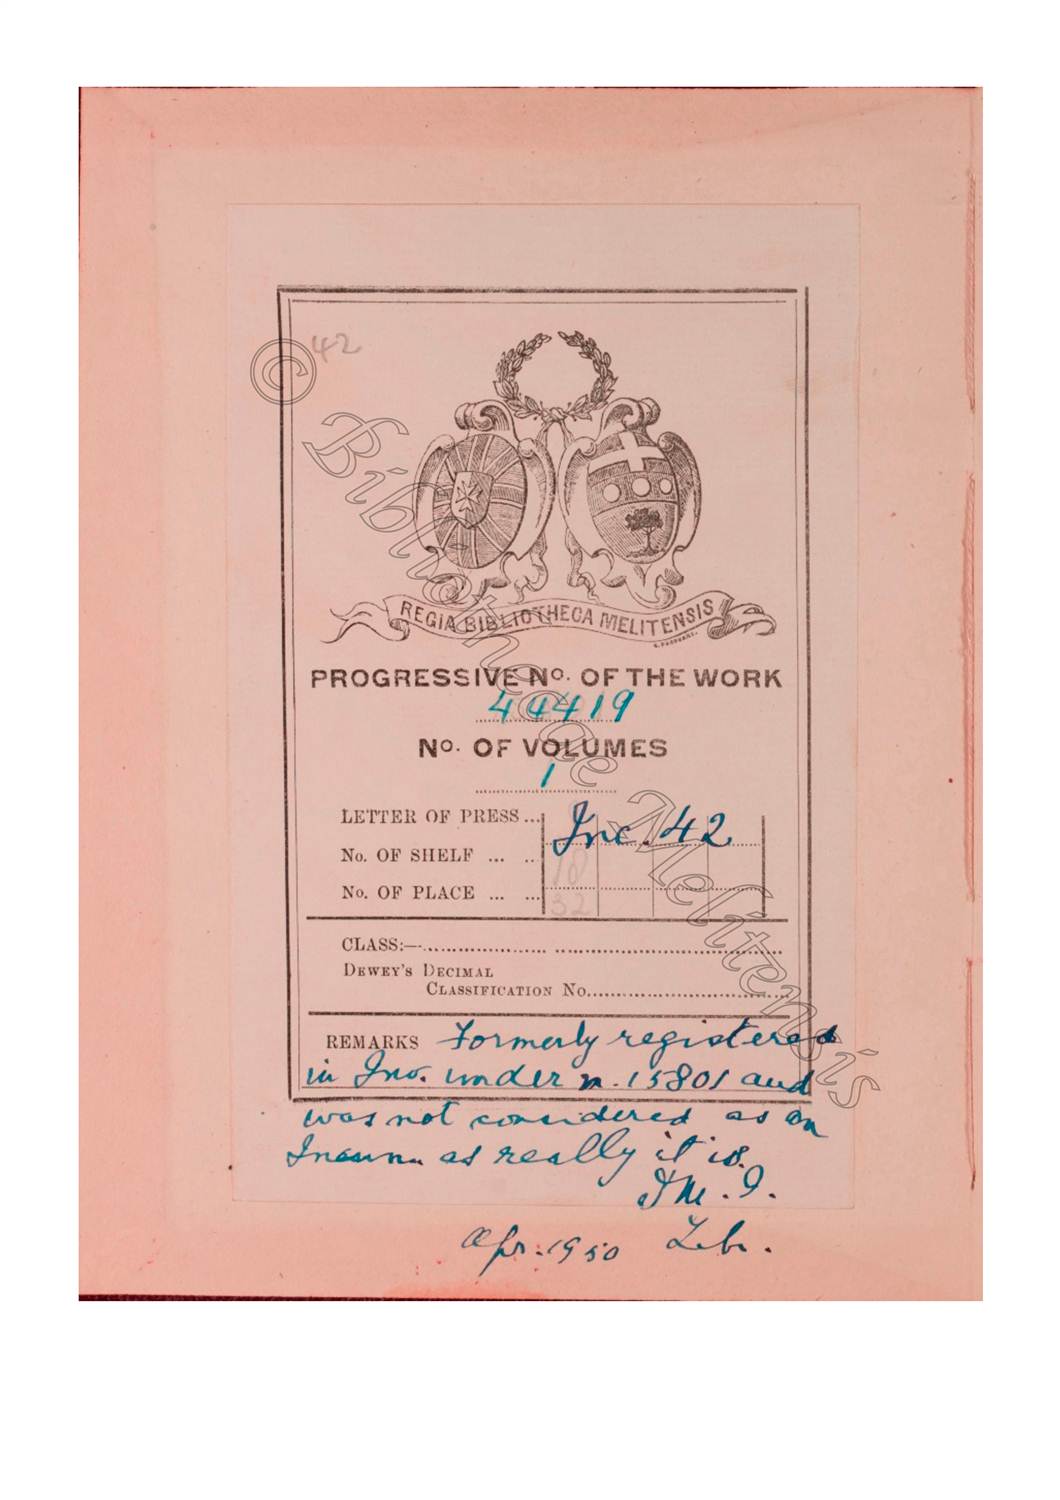 42
REGIA BIBLIOTHECA MELITENSIS
PROGRESSIVE No. OF THE WORK
44419
No. OF VOLUMES
1
LETTER OF PRESS... Inc. 42
No. OF SHELF ... .. 18
No. OF PLACE ... ... 32
CLASS:—
DEWEY'S DECIMAL
CLASSIFICATION No.
REMARKS Formerly registered
in Inv. under n. 15801 and
was not considered as an
Incun. as really it is.
Lib.
Apr. 1950
© Bibliothecae Melitensis